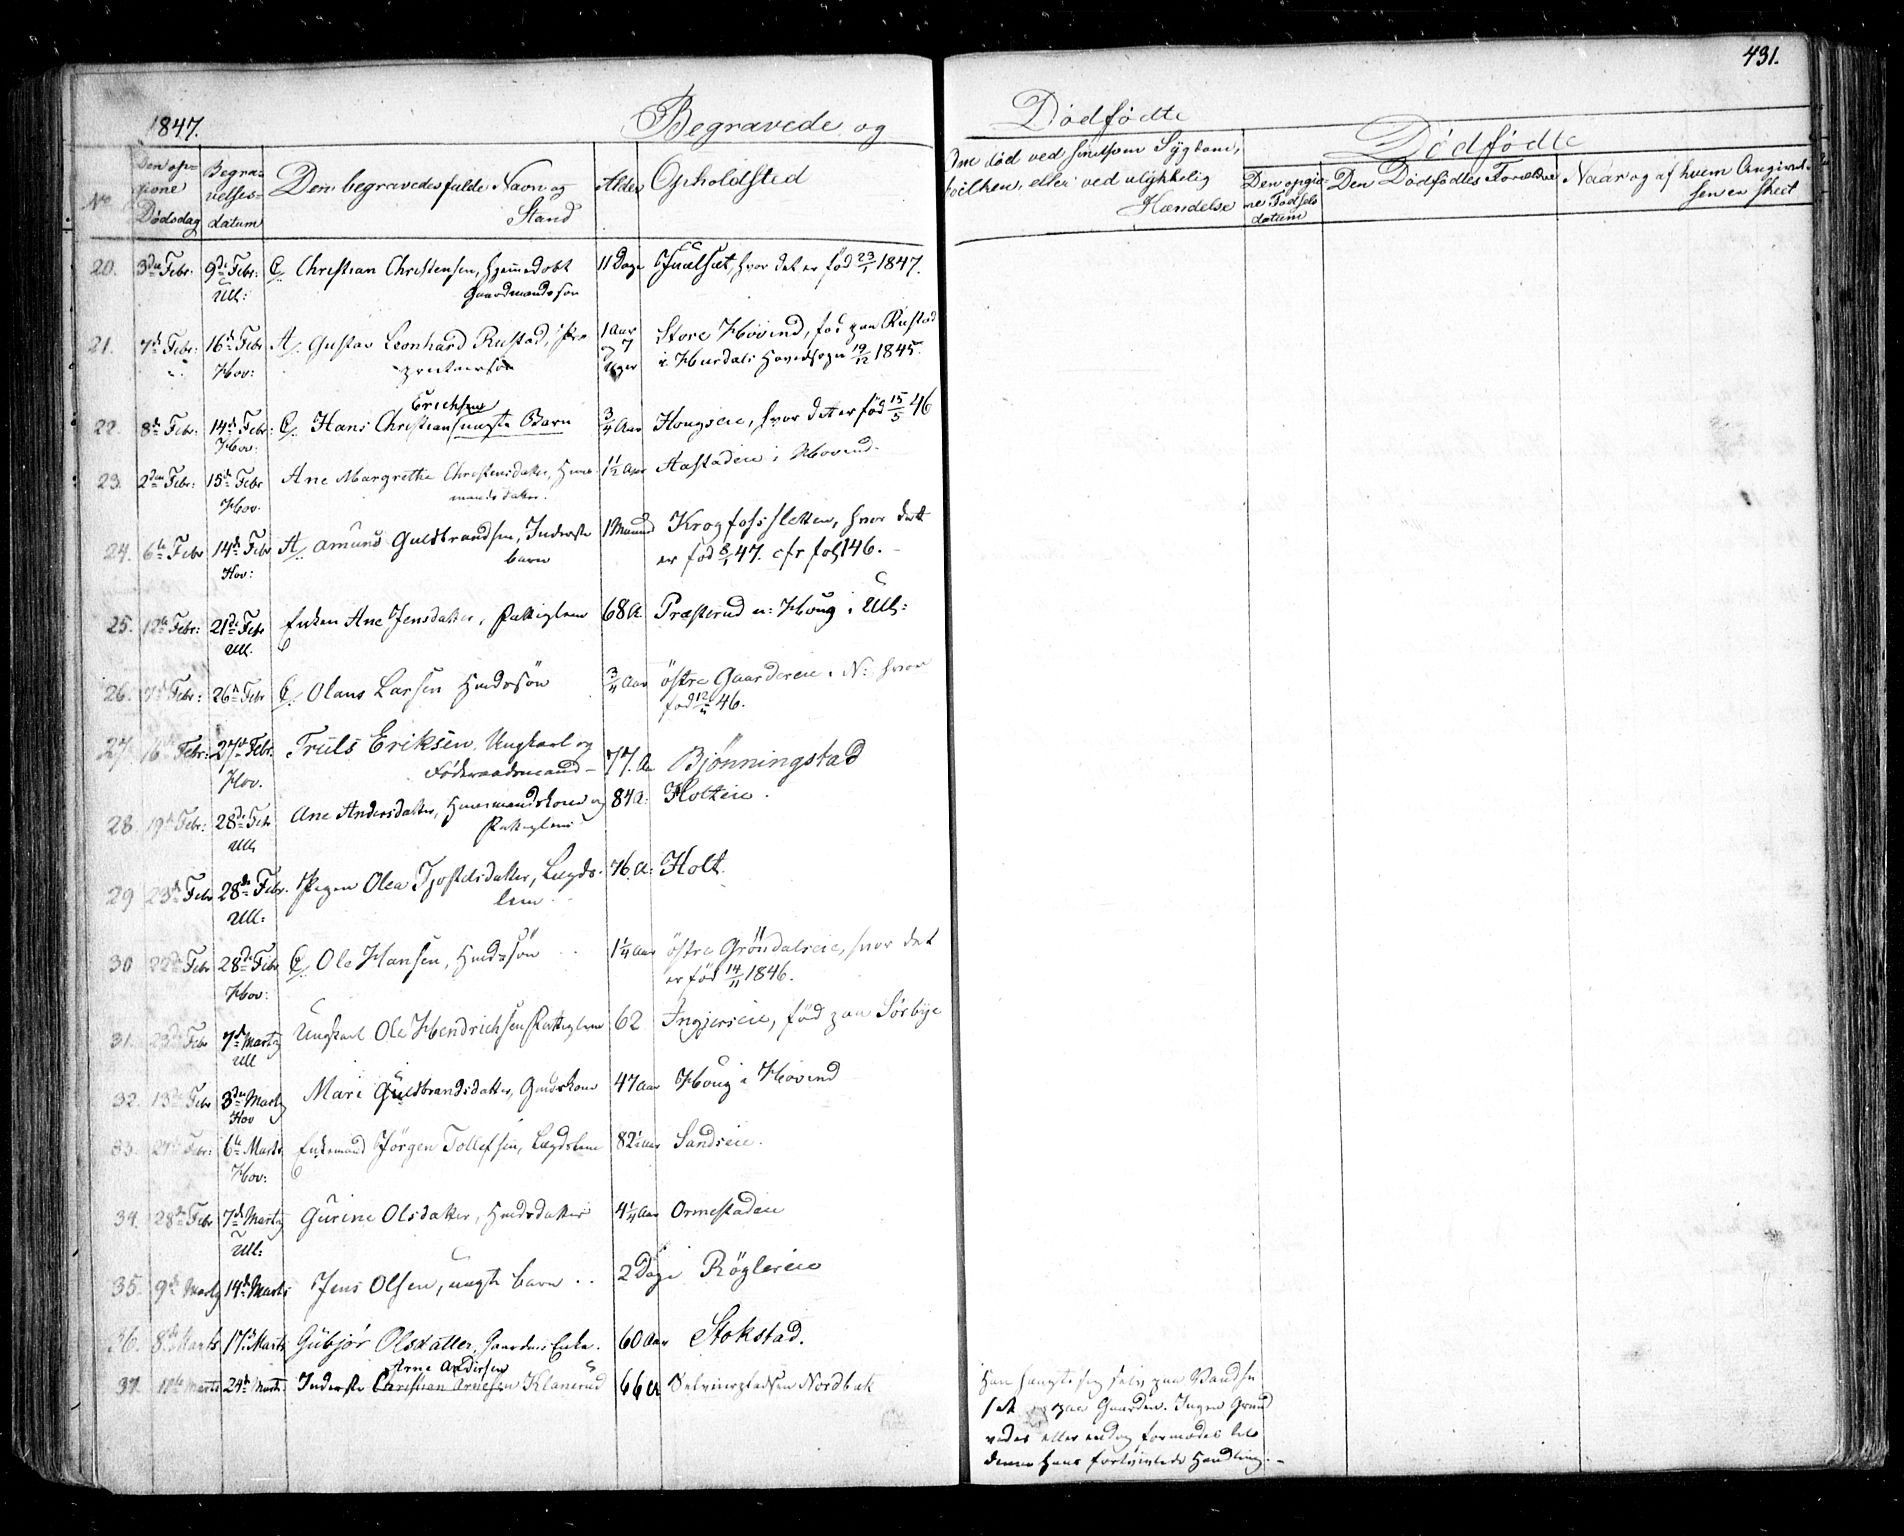 431.
1847. Begravede og Dødfødte
No
Den op-
givne
Dødsdag
Begra-
velses-
datum
Dem begravedes fulde Navn og
Stand
Alder
Opholdsted
Om død ved smitsom Sygdom,
hvilken, eller ved ulykkelig
Hændelse
Dødfødte
Den opgiv-
ne Fødsels
datum
Den Dødfødtes Forældre
Naar og af hvem Angivel-
sen er skeet
20. 3die Febr: 9de Febr: C/. Christian Christensen, hjemmedøbt 11 Dage hvor det er fød 23/1 1847.
Ull: Gaardmandssøn
21. 7de Febr: 16de Febr A/. Gustav Leonhard Rustad, 1 Aar Store Hovind, fød paa Rustad
Hov: og 7 i Hurdals Hovedsogn 19/12 1845.
Uger
Erichsen
22. 8de Febr: 14de Febr: C/. Hans Christian uægte Barn 3/4 Aar Hougseie, hvor det er fød 15/5 46
Hov:
23. 2den Febr: 15de Febr Ane Margrethe Christensdatter, Huus- 1 1/2 Aar Aastadeie i Hovind.
Hov. mandsdatter.
24. 6te Febr 14de Febr A/. Amund Guldbrandsen, Inderste 1 Maaned Krogfossletten, hvor dett
Hov: barn er fød 8/1 47. cfr fol 146.
25. 12te Febr: 21de Febr Enken Ane Jensdatter, Fattiglem 68 A. Præsterud u: Houg i Ull:
Ull.
26. 7de Febr: 26de Febr C/. Olaus Larsen Hmdssøn 3/4 Aar østre Gaardereie i N: hvor
fød 46.
27. 16de Febr: 27de Febr. Truls Eriksen. Ungkarl og 77. A Bjønningstad
Hov. Føderaadsmand
28. 19de Febr: 28de Febr Ane Andersdatter, Huusmandskone og 84 A. Holteie.
Ull. Fattiglem
29 23de Febr 28de Febr. Pigen Olea Tjostelsdatter, Lægds- 76. A: Holt.
Ull: lem
30 22de Febr 28de Febr C/. Ole Hansen, Hmdssøn 1 1/4 Aar østre Grøndalseie, hvor det
Hov: er fød 14/11 1846.
31. 23de Febr 7de Marts Ungkarl Ole Hendrichsen Fattiglem 62 Ingjerseie, fød paa Sørbye
Ull
32. 13de Febr 3die Marts Mari Guldbrandsdatter, Gmdskone 47 Aar Houg i Hovind
Hov
33. 27de Febr: 6te Marts Enkemand Jørgen Tollefsen, Lægdslem 82 1/2 Aar Sandseie.
Hov:
34. 28de Febr 7de Marts Gurine Olsdatter, Hmdsdatter 4 1/4 Aar Ormestadeie
Ull:
35. 9de Marts 14de Marts Jens Olsen, uægte barn 2 Dage Røglereie
36. 8de Marts 17de Marts Gubjør Olsdatter, Gaardmds Enke. 60 Aar Stokstad.
Arne Andersen
37. 18de Marts 24de Marts Inderste Christian Arnesen Klanerud 66 A Selveierpladsen Nordbak
Han hængte sig selv paa
paa Gaarden. Ingen Grund
vides eller endog formodes til
denne hans fortvivlede Handling.